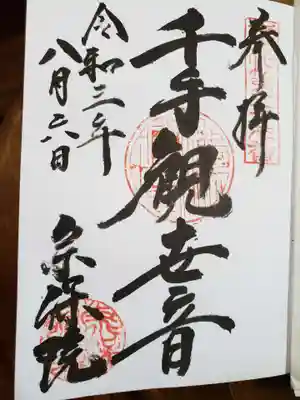 奉拝
千手観世音
令和三年
八月六日
宗保院